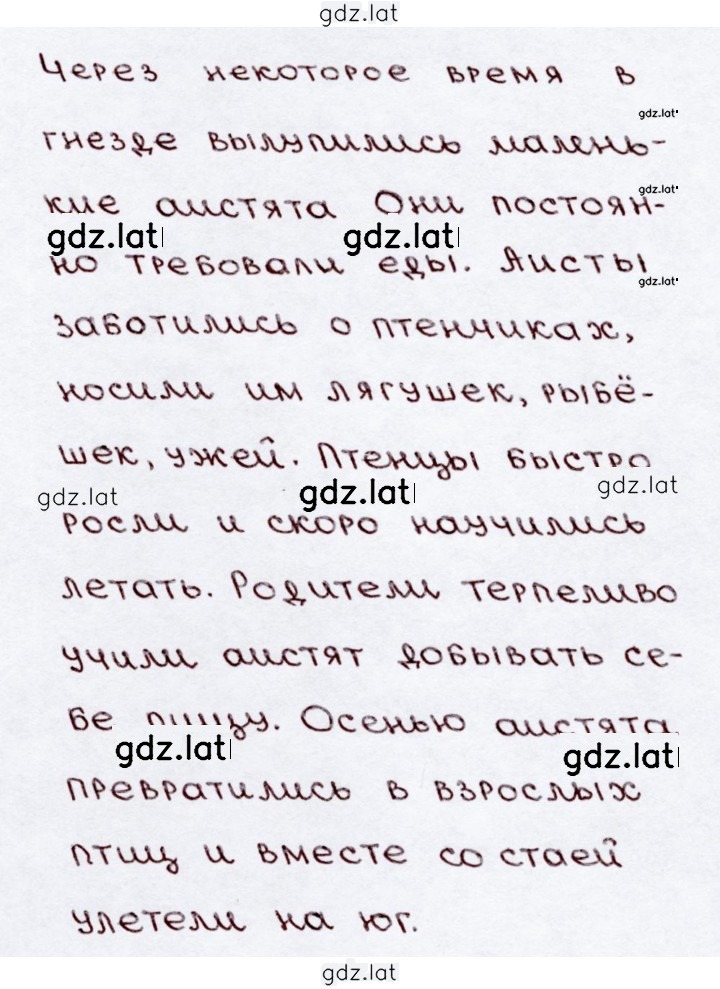 gdz.lat
Через некоторое время в
gdz.lat
гнезде вылупились малень-
gdz.lat
кие аистята Они постоян-
gdz.lat gdz.lat
но требовали еды. Аисты
gdz.lat
заботились о птенчиках,
носили им лягушек, рыбё-
шек, ужей. Птенцы быстро
gdz.lat gdz.lat gdz.lat
росли и скоро научились
летать. Родители терпеливо
учили аистят добывать се-
бе пищу. Осенью аистята
gdz.lat gdz.lat
превратились в взрослых
птиц и вместе со стаей
улетели на юг.
gdz.lat